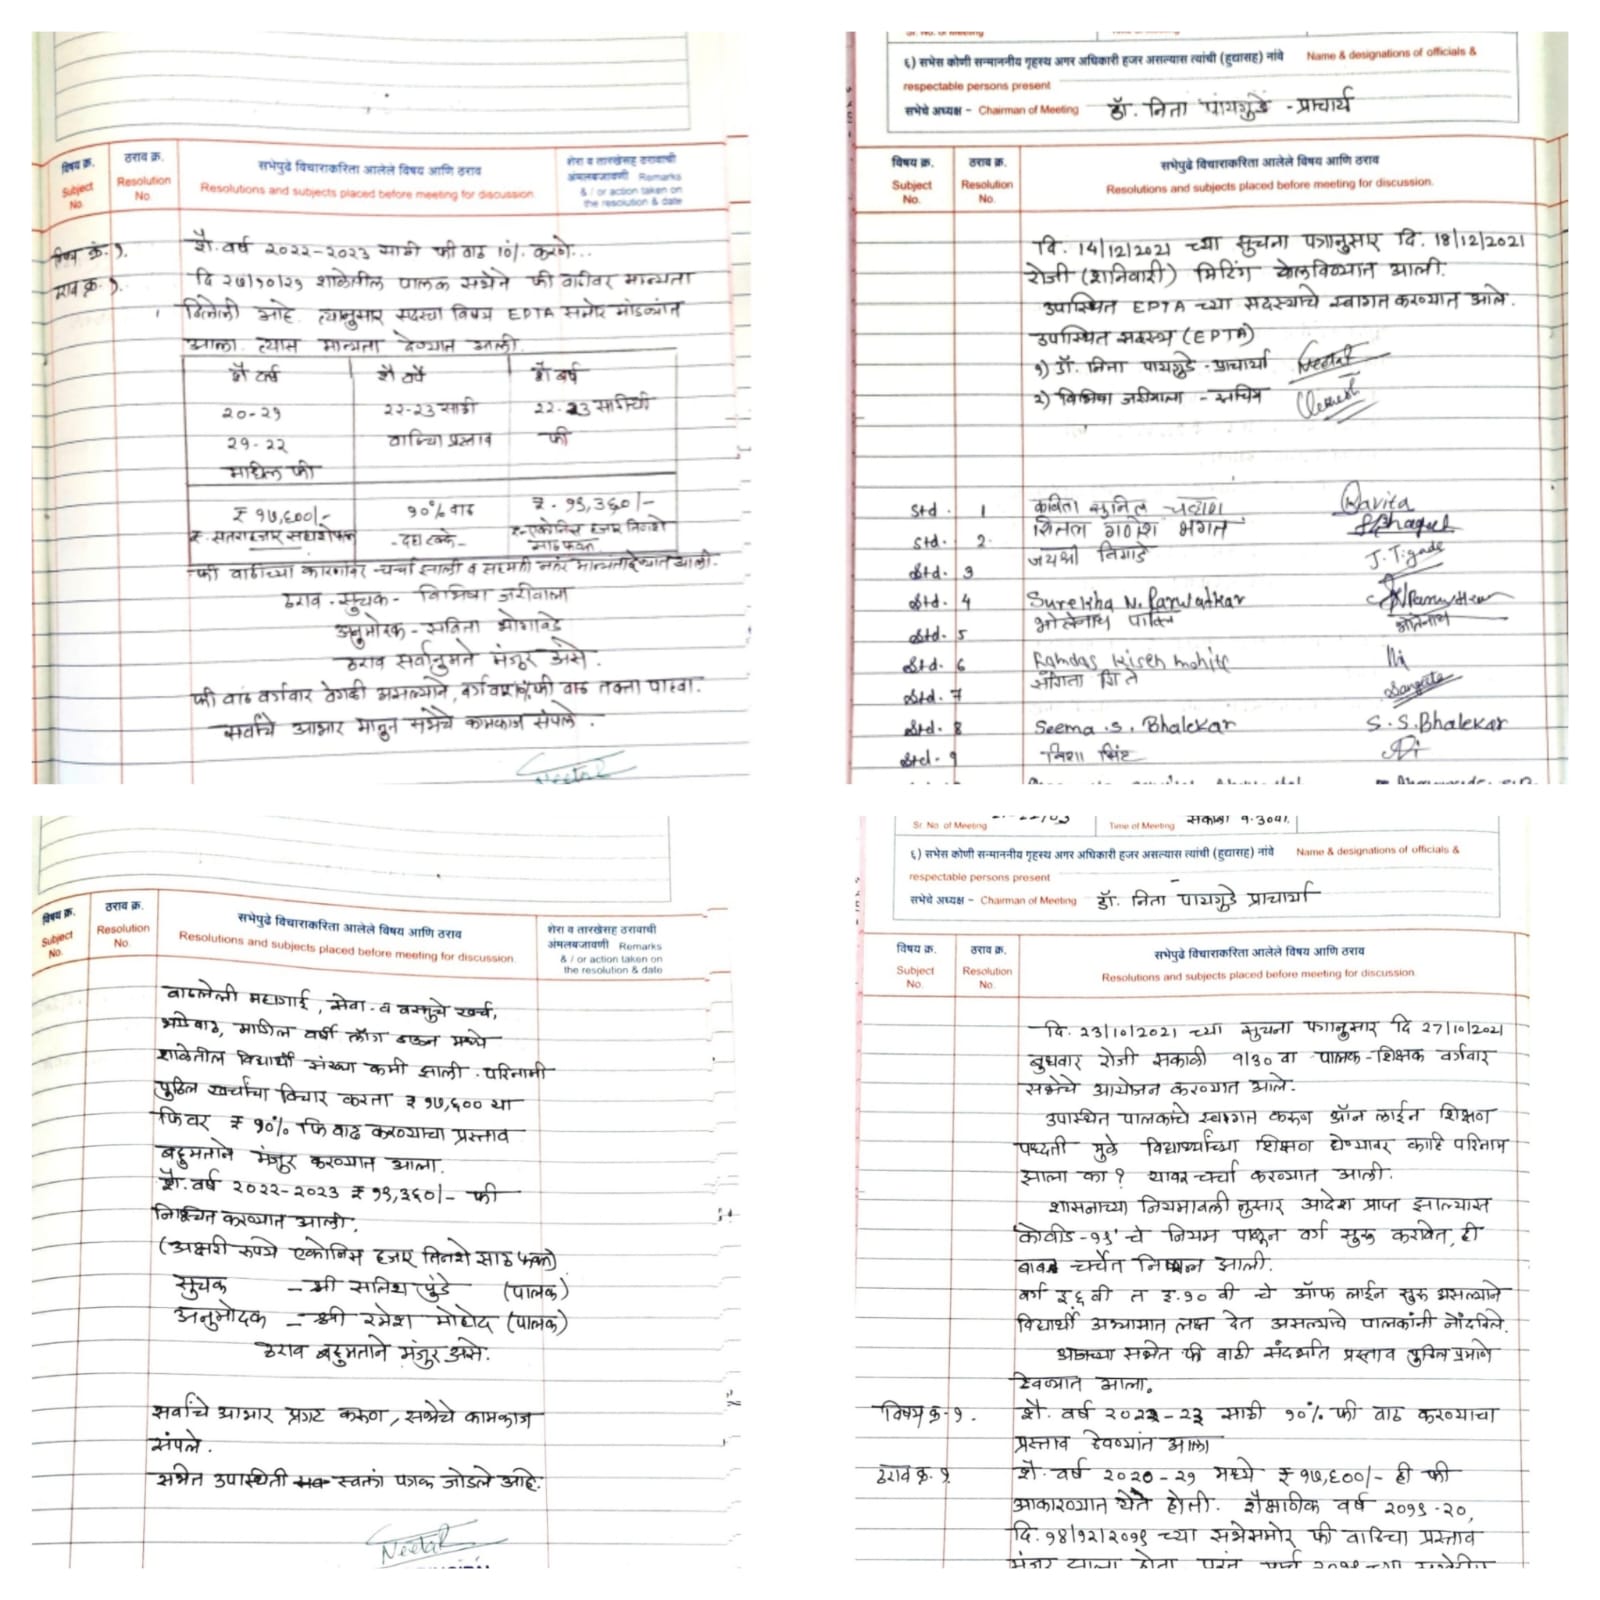 विषय क्र.
Subject No.
ठराव क्र.
Resolution No.
सभेपुढे विचाराकरिता आलेले विषय आणि ठराव
Resolutions and subjects placed before meeting for discussion.
शेरा व तारखेसह ठरावाची
अंमलबजावणी Remarks
& / or action taken on
the resolution & date
विषय क्रं. १.
शै. वर्ष २०२२-२०२३ साठी फी वाढ 10% करणे...
ठराव क्र. १.
दि २७/१०/२१ शाळेतील पालक सभेने फी वाढीवर मान्यता
दिलेली आहे. त्यानुसार सदरचा विषय EPTA समोर मांडण्यांत
आला. त्यास मान्यता देण्यात आली.
शै वर्ष शै वर्ष शै वर्ष
२०-२१ २२-२३ साठी २२-२३ साठीची
२१-२२ वाढिचा प्रस्ताव फी
माधील फी
₹ १७,६००/- १०% वाढ ₹. १९,३६०/-
रु. सतराहजार सहाशेफक्त -दहा टक्के- रु-एकोनिस हजार तिनशे
साठ फक्त
फी वाढीच्या कारणांवर चर्चा झाली व सहमती नंतर मान्यता देण्यात आली.
ठराव - सुचक - जरीवाला
अनुमोदक - सविता
ठराव सर्वानुमते मंजुर असे.
फी वाढ वर्गवार वेगळी असल्याने, वर्गवार फी वाढ तक्ता पाहवा.
सर्वांचे आभार मानुन सभेचे कामकाज संपले.
६) सभेस कोणी सन्माननीय गृहस्थ अगर अधिकारी हजर असल्यास त्यांची (हुद्यासह) नांवे Name & designations of officials &
respectable persons present
सभेचे अध्यक्ष - Chairman of Meeting डॉ. निता पायगुडे - प्राचार्य
विषय क्र.
Subject No.
ठराव क्र.
Resolution No.
सभेपुढे विचाराकरिता आलेले विषय आणि ठराव
Resolutions and subjects placed before meeting for discussion.
दि. 14/12/2021 च्या सुचना पत्रानुसार दि. 18/12/2021
रोजी (शनिवारी) मिटिंग बोलविण्यात आली.
उपस्थित EPTA च्या सदस्याचे स्वागत करण्यात आले.
उपास्थित सदस्य (EPTA)
१) डॉ. निता पायगुडे - प्राचार्या
२) जरीवाला - सचिव
Std. 1 कविता सुनिल चव्हाण Kavita
Std. 2. शितल गणेश भगत
Std. 3 जयश्री तिगाडे J. Tigade
Std. 4 Surekha N. Parwatkar
Std. 5 भोलेनाथ पाटिल भोलेनाथ
Std. 6 Ramdas Kisen mohite
Std. 7 संगिता गिते Sangeeta
Std. 8 Seema . S. Bhalekar S. S. Bhalekar
Std. 9 निशा सिंह
विषय क्र.
Subject No.
ठराव क्र.
Resolution No.
सभेपुढे विचाराकरिता आलेले विषय आणि ठराव
Resolutions and subjects placed before meeting for discussion.
शेरा व तारखेसह ठरावाची
अंमलबजावणी Remarks
& / or action taken on
the resolution & date
वाढलेली महागाई, सेवा व वस्तुचे खर्च,
भाडेवाढ, मागिल वर्षी लॉग डाऊन मध्ये
शाळेतील विद्यार्थी संख्या कमी झाली. परिनामी
पुढिल खर्चाचा विचार करता ₹ १७,६०० या
फिवर ₹ १०% फि वाढ करण्याचा प्रस्ताव
बहुमताने मंजुर करण्यात आला.
शै. वर्ष २०२२-२०२३ ₹ १९,३६०/- फी
निश्चित करण्यात आली.
(अक्षरी रुपये एकोनिस हजार तिनशे साठ फक्त)
सुचक - श्री सतिश पुंडे (पालक)
अनुमोदक - श्री रमेश मोहोद (पालक)
ठराव बहुमताने मंजुर असे.
सर्वांचे आभार प्रगट करुण, सभेचे कामकाज
संपले.
सभेत उपास्थिती स्वतंत्र पत्रक जोडले आहे.
Sr. No. of Meeting
Time of Meeting सकाळी ९.३०वा.
६) सभेस कोणी सन्माननीय गृहस्थ अगर अधिकारी हजर असल्यास त्यांची (हुद्यासह) नांवे Name & designations of officials &
respectable persons present
सभेचे अध्यक्ष - Chairman of Meeting डॉ. निता पायगुडे प्राचार्या
विषय क्र.
Subject No.
ठराव क्र.
Resolution No.
सभेपुढे विचाराकरिता आलेले विषय आणि ठराव
Resolutions and subjects placed before meeting for discussion.
दि. 23/10/2021 च्या सुचना पत्रानुसार दि 27/10/2021
बुधवार रोजी सकाळी ९।३० वा पालक-शिक्षक वर्गवार
सभेचे आयोजन करण्यात आले.
उपास्थित पालकांचे स्वागत करुण ऑन लाईन शिक्षण
पध्दती मुळे विद्यार्थ्यांच्या शिक्षण घेण्यावर काहि परिनाम
झाला का? यावर चर्चा करण्यात आली.
शासनाच्या नियमावली नुसार आदेश प्राप्त झाल्यास
'कोवीड-१९' चे नियम पाळून वर्ग सुरू करावेत, ही
बाब चर्चेत निष्पन्न झाली.
वर्ग इ.६ वी त इ.१० वी चे ऑफ लाईन सुरु असल्याने
विद्यार्थी अभ्यासात लक्ष देत असल्याचे पालकांनी नोंदविले.
आजच्या सभेत फी वाढी संदर्भात प्रस्ताव पुढिल प्रमाणे
ठेवण्यात आला.
विषय क्र-१. शै. वर्ष २०२२-२३ साठी १०% फी वाढ करण्याचा
प्रस्ताव ठेवण्यांत आला
ठराव क्र. १ शै. वर्ष २०२०-२१ मध्ये ₹ १७,६००/- ही फी
आकारण्यात येते होती. शैक्षाणिक वर्ष २०१९-२०,
दि. १४/१२/२०१९ च्या सभेसमोर फी वाढिचा प्रस्ताव